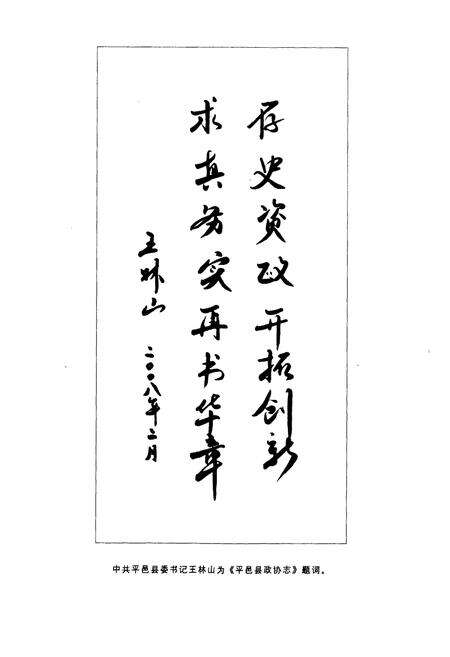 存史资政开拓创新
求真务实再书华章
王林山
二〇〇八年二月
中共平邑县委书记王林山为《平邑县政协志》题词。